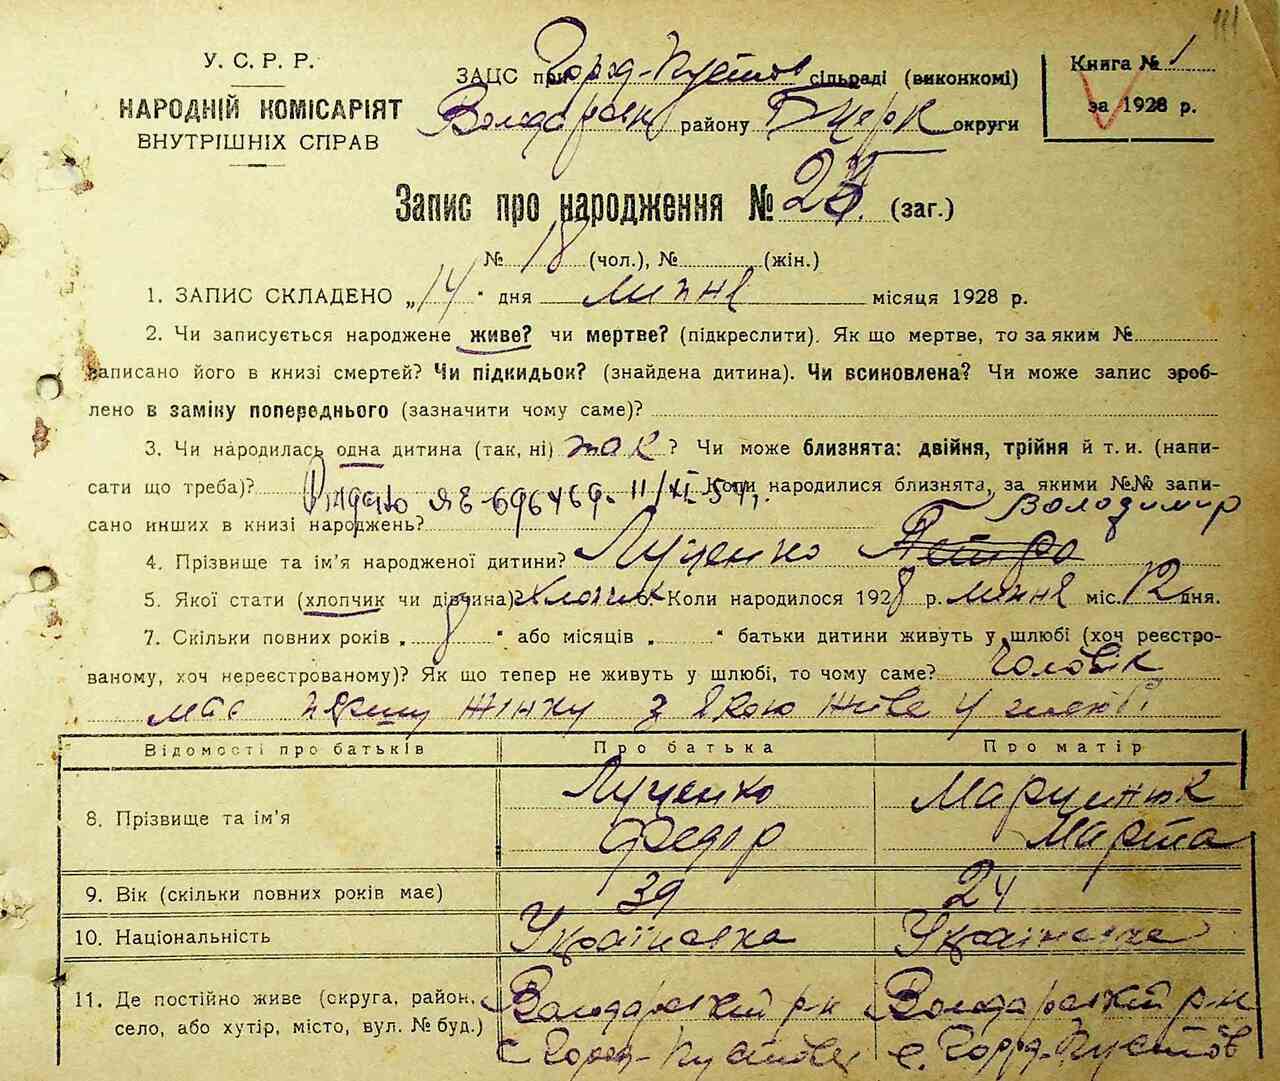 111
У. С. Р. Р.
НАРОДНІЙ КОМІСАРІЯТ
ВНУТРІШНІХ СПРАВ
ЗАЦС при Город-Пустов сільраді (виконкомі)
Володарськ району Бцерк округи
Книга № 1
за 1928 р.
Запис про народження № 25. (заг.)
№ 18 (чол.), № (жін.)
1. ЗАПИС СКЛАДЕНО „14" дня липня місяця 1928 р.
2. Чи записується народжене живе? чи мертве? (підкреслити). Як що мертве, то за яким №
записано його в книзі смертей? Чи підкидьок? (знайдена дитина). Чи всиновлена? Чи може запис зроб-
лено в заміну попереднього (зазначити чому саме)?
3. Чи народилась одна дитина (так, ні) так ? Чи може близнята: двійня, трійня й т. и. (напи-
сати що треба)? 696469 11/XI Коли народилися близнята, за якими №№ запи-
сано инших в книзі народжень? Володимир
4. Прізвище та ім'я народженої дитини? Луценко Петро
5. Якої стати (хлопчик чи дівчина)? хлопчик 6. Коли народилося 1928 р. липня міс. 12 дня.
7. Скільки повних років „8" або місяців „ " батьки дитини живуть у шлюбі (хоч реєстро-
ваному, хоч нереєстрованому)? Як що тепер не живуть у шлюбі, то чому саме? Чоловік
має першу жінку з якою живе у шлюбі
Відомості про батьків Про батька Про матір
8. Прізвище та ім'я Луценко Федор Марцинюк Марта
9. Вік (скільки повних років має) 39 24
10. Національність Українська Українська
11. Де постійно живе (округа, район, Володарський р-н Володарський р-н
село, або хутір, місто, вул. № буд.) с Город-Пустовц с. Город-Пустов